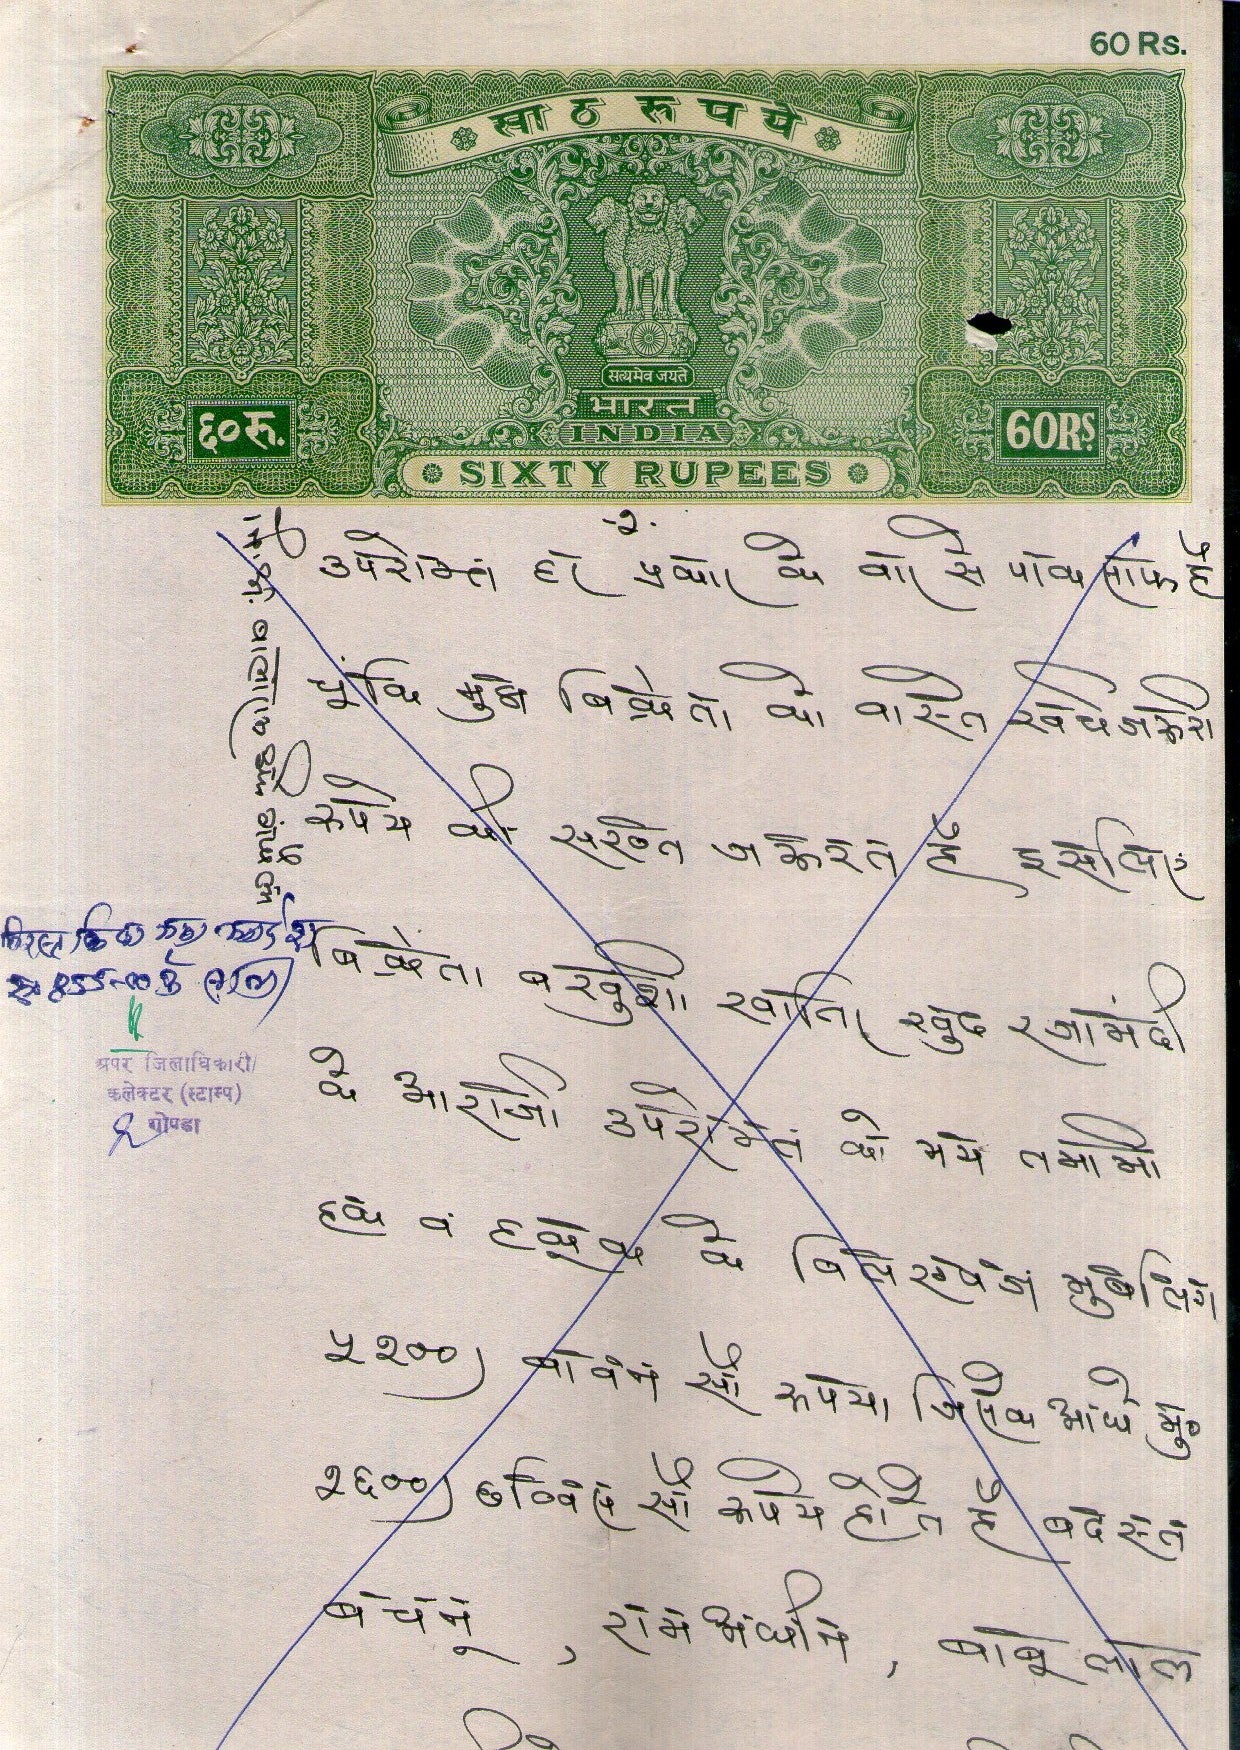 60 Rs.
साठ रुपये
सत्यमेव जयते
भारत
INDIA
६०रु.
60RS
SIXTY RUPEES
-२-
उपरोक्त हर प्रकार के वार से पाक साफ है
चूंकि मुझ विक्रेता को वास्ते खर्च जरूरी
रूपये की सख्त जरूरत है, इसलिए
विक्रेता बखुशी खातिर खुद रजामंदी
के आराजी उपरोक्त को मय तमामी
हक व हकूक के बिलएवज मुबलिग
५२००) बावन सौ रूपया जिसके आधे मु०
२६००) छब्बिस सौ रूपये होते है बदस्त
बचनू, राम अधीन, बाबू लाल
अपर जिलाधिकारी/
कलेक्टर (स्टाम्प)
गोण्डा